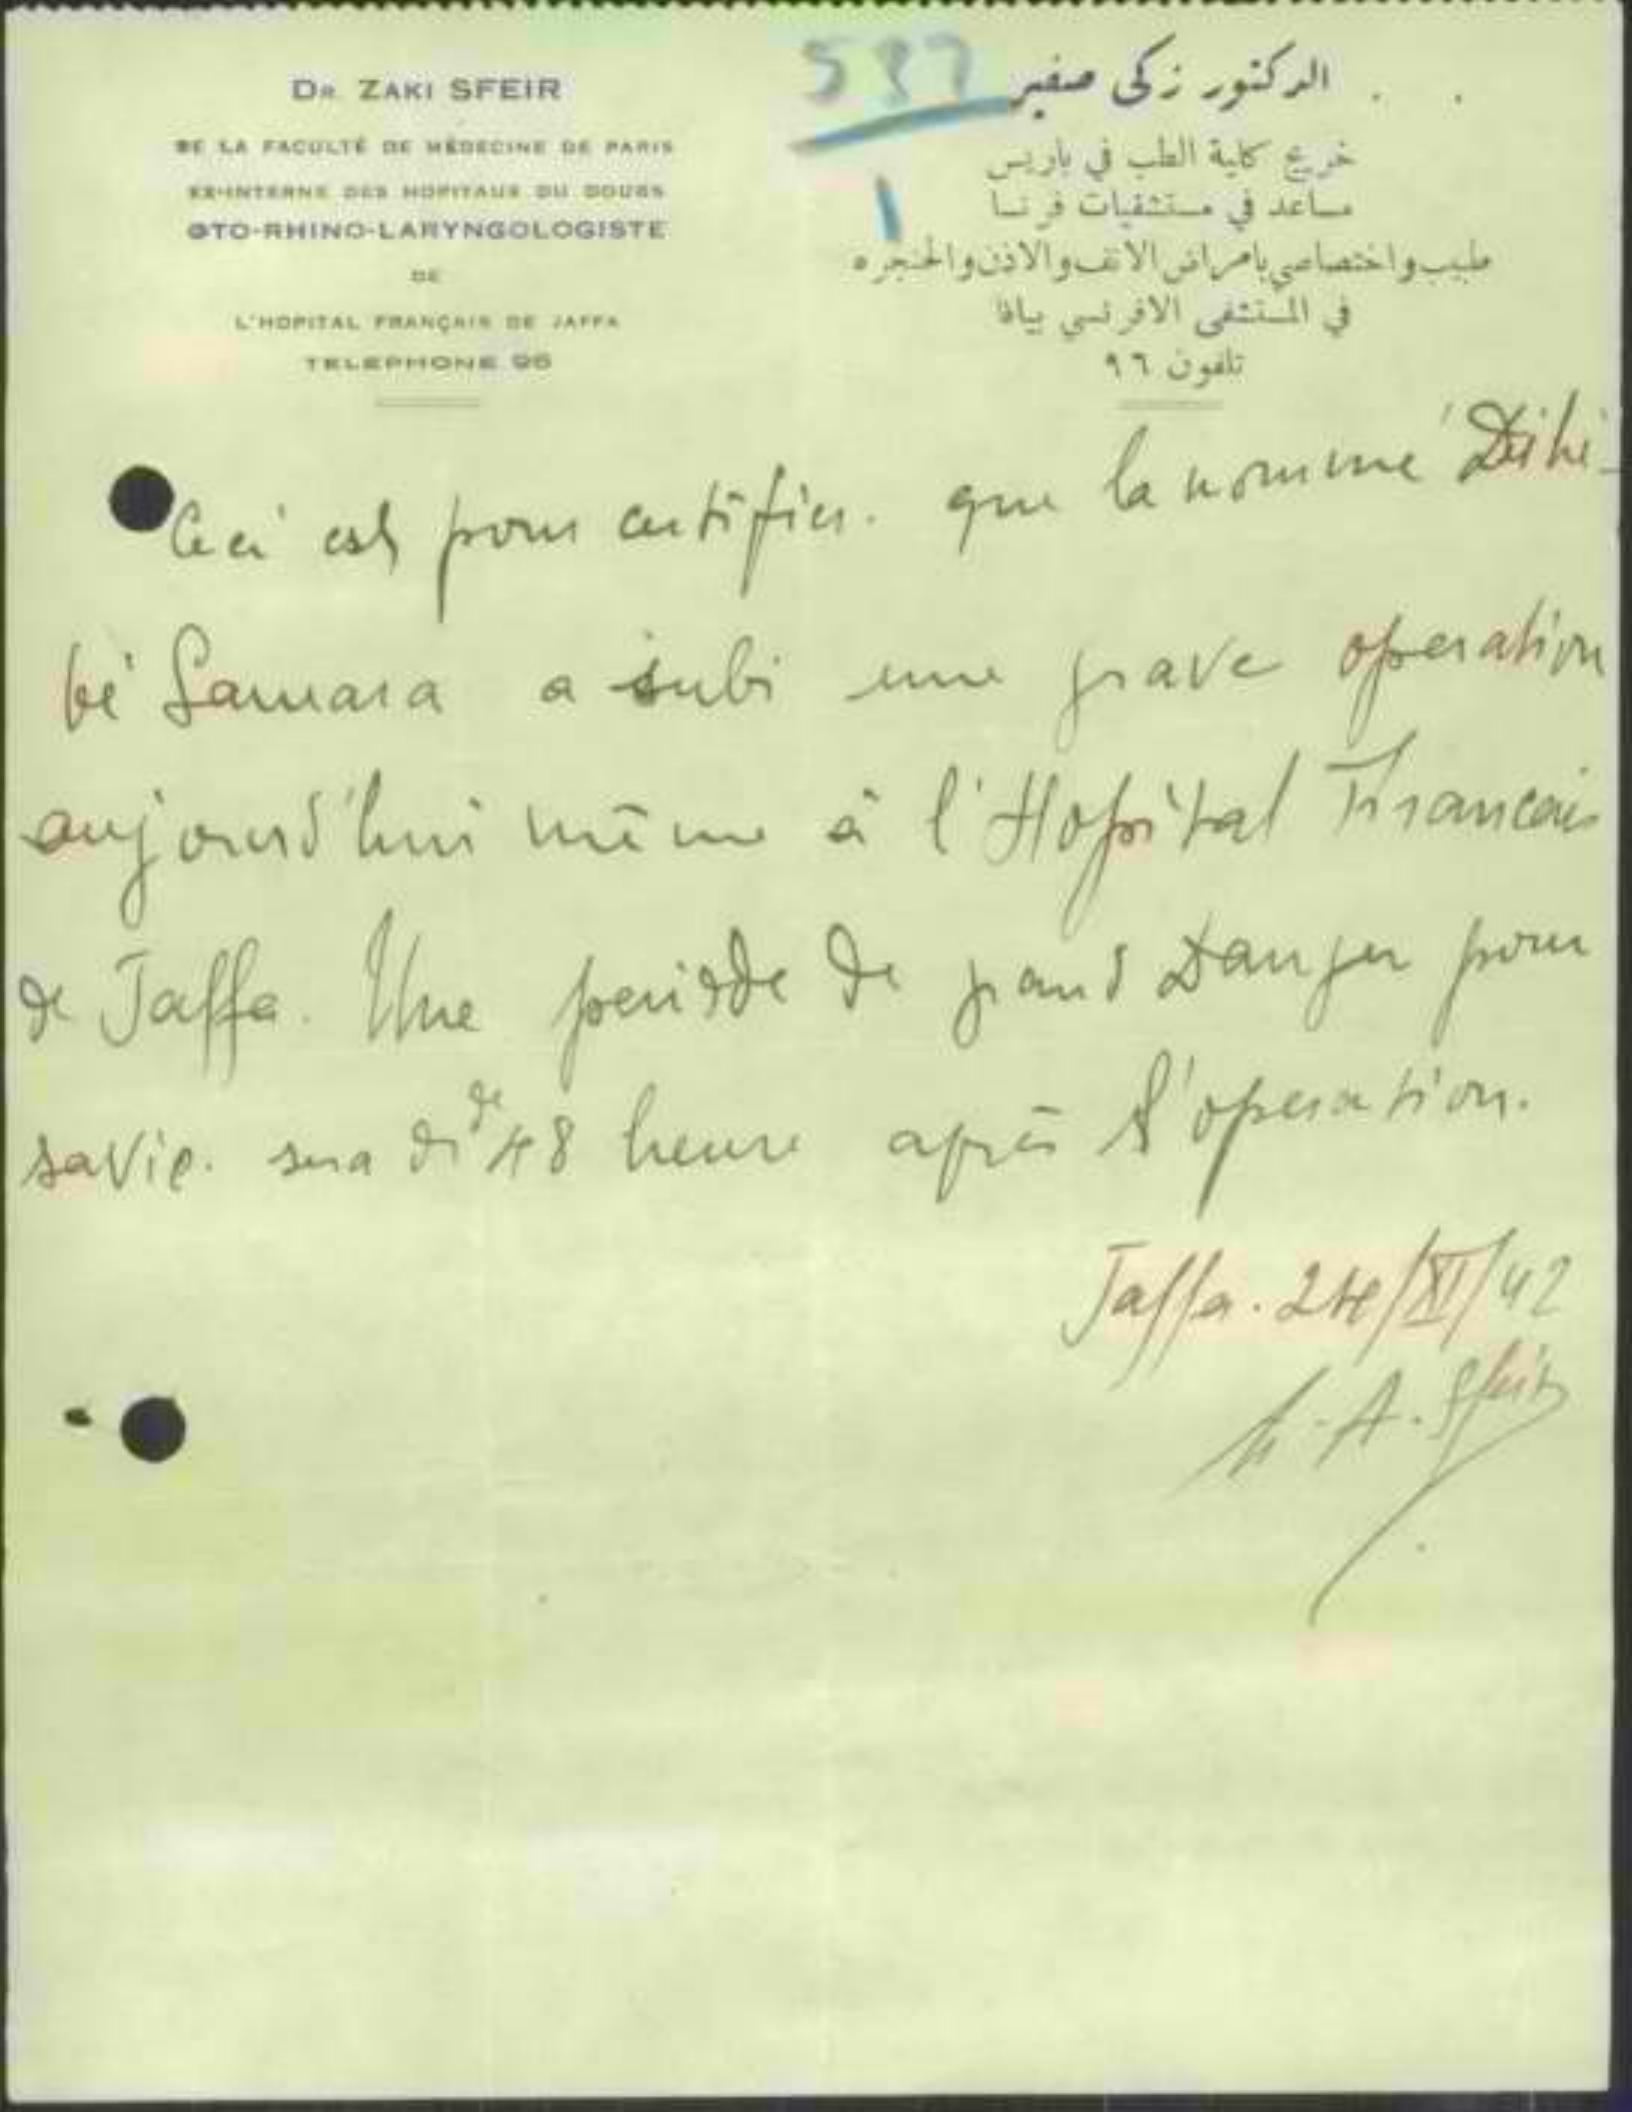 DR. ZAKI SFEIR
DE LA FACULTÉ DE MÉDECINE DE PARIS
EX-INTERNE DES HOPITAUX DU DOUBS
OTO-RHINO-LARYNGOLOGISTE
DE
L'HOPITAL FRANÇAIS DE JAFFA
TELEPHONE 96
الدكتور زكي صفير
خريج كلية الطب في باريس
مساعد في مستشفيات فرنسا
طبيب واختصاصي بامراض الانف والاذن والحنجره
في المستشفى الافرنسي بيافا
تلفون ٩٦
1
Ceci est pour certifier. que la nommé
Samara a subi une grave operation
aujourd'hui même à l'Hopital Francais
de Jaffa. Une periode de grand Danger pour
sa vie. sera de 48 heure après l'operation.
Jaffa. 24/XI/42
A. Sfeir